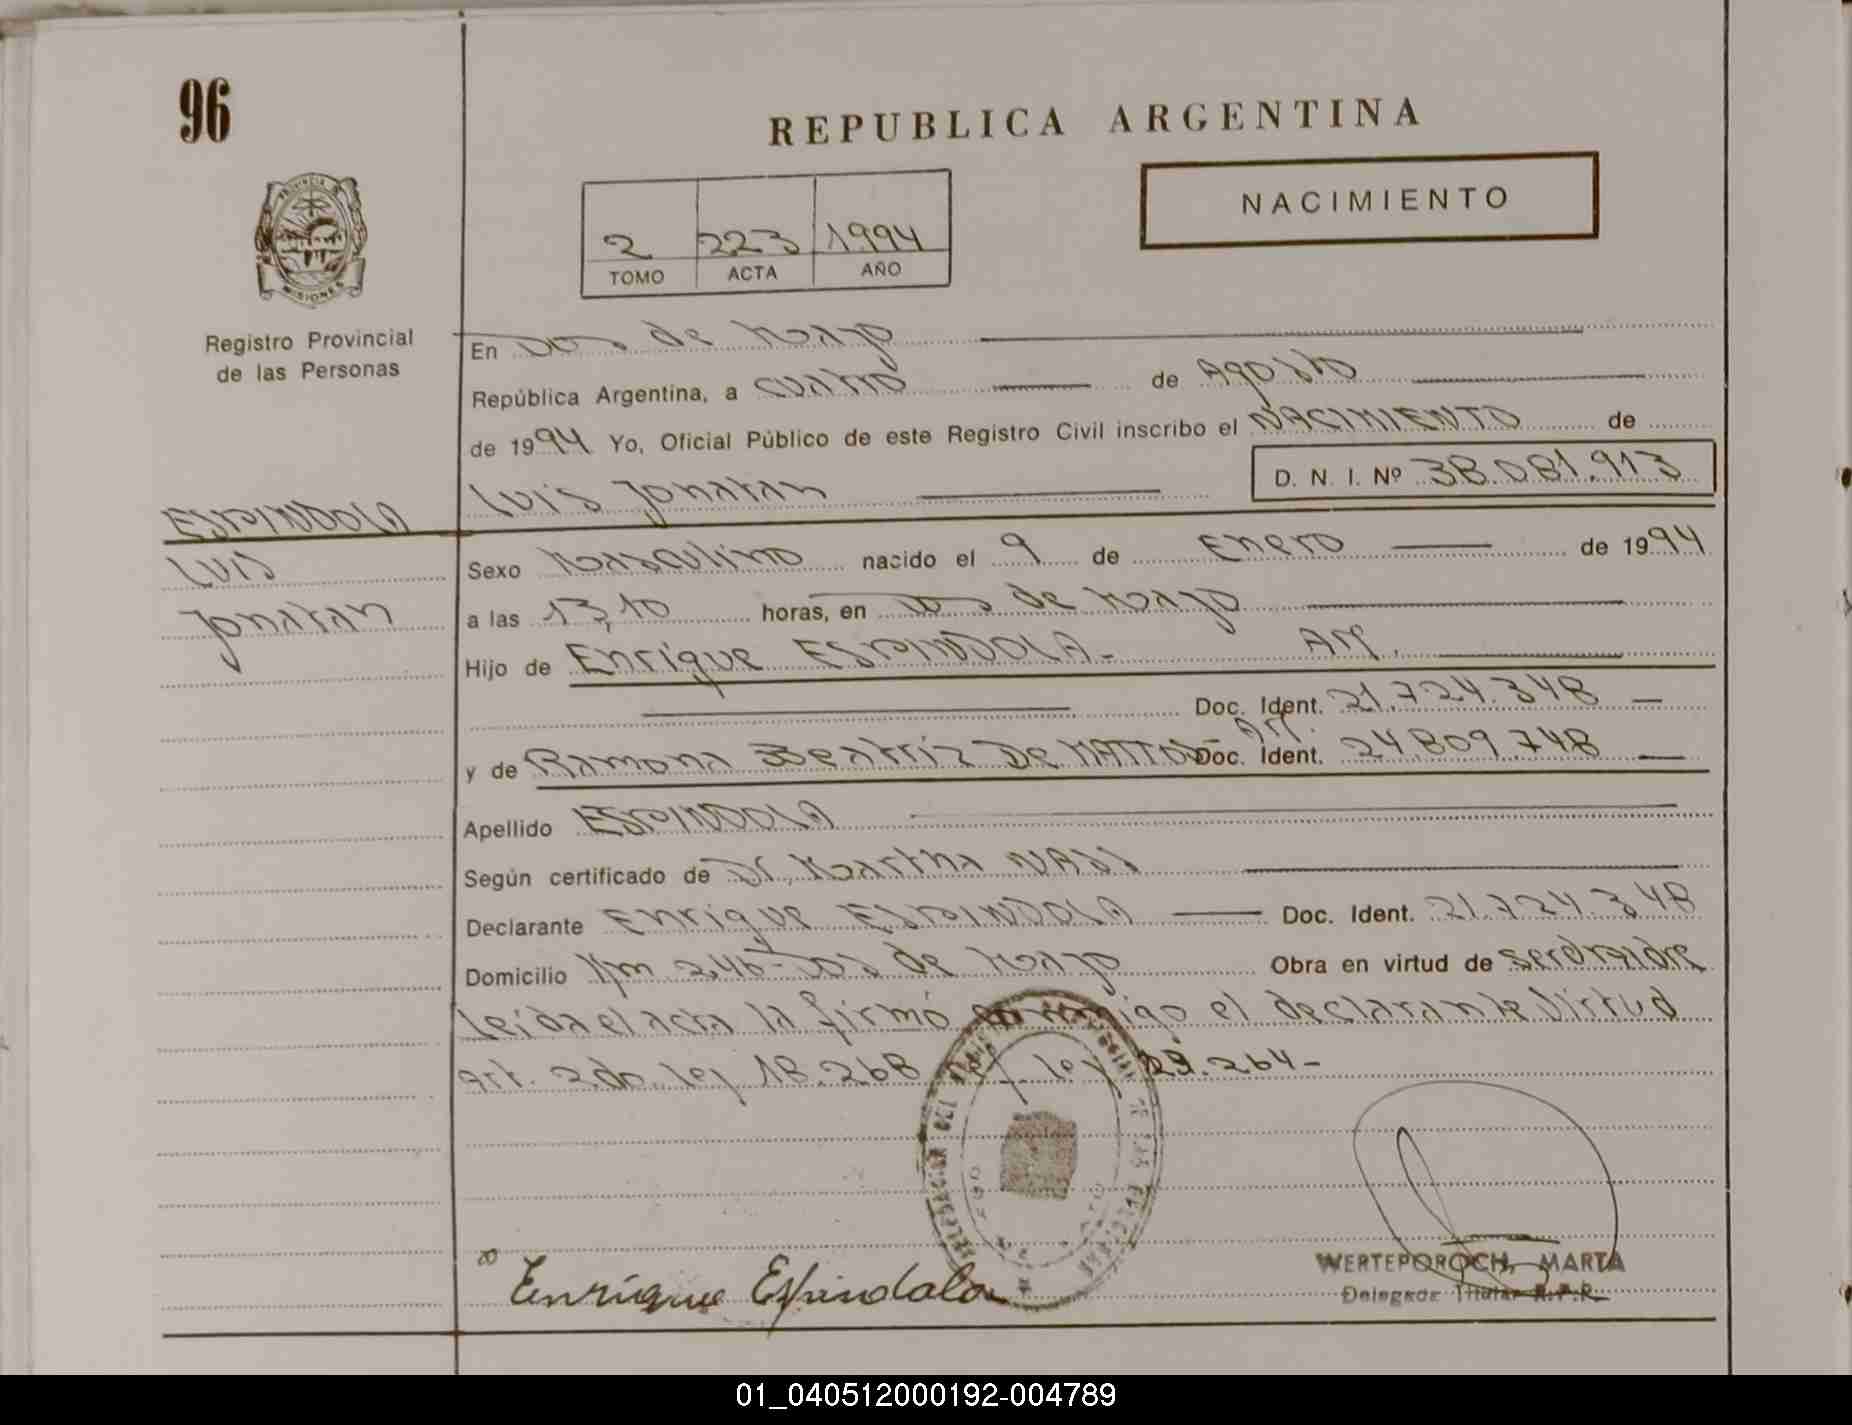 96
REPUBLICA ARGENTINA
NACIMIENTO
2 223 1994
TOMO ACTA AÑO
PROVINCIA DE
MISIONES
Registro Provincial
de las Personas
En Dos de Mayo
República Argentina, a cuatro de Agosto
de 1994 Yo, Oficial Público de este Registro Civil inscribo el NACIMIENTO de
Luis Jonatan D. N. I. Nº 38.081.913
ESPINDOLA
Luis
Jonatan
Sexo Masculino nacido el 9 de Enero de 1994
a las 13,10 horas, en Dos de Mayo
Hijo de Enrique ESPINDOLA- Arg.
Doc. Ident. 21.724.348
y de Ramona Beatriz De MATTOS- Arg. Doc. Ident. 24809.748
Apellido ESPINDOLA
Según certificado de Dr. Martha
Declarante Enrique ESPINDOLA Doc. Ident. 21.724.348
Domicilio Km 246-Dos de Mayo Obra en virtud de ser padre
leida el acta la firmó conmigo el declarante Virtud
art. 2do. ley 18.268 ley 23.264-
Enrique Espindola
WERTEPOROCH, MARTA
Delegada Titular R.P.P.
01_040512000192-004789